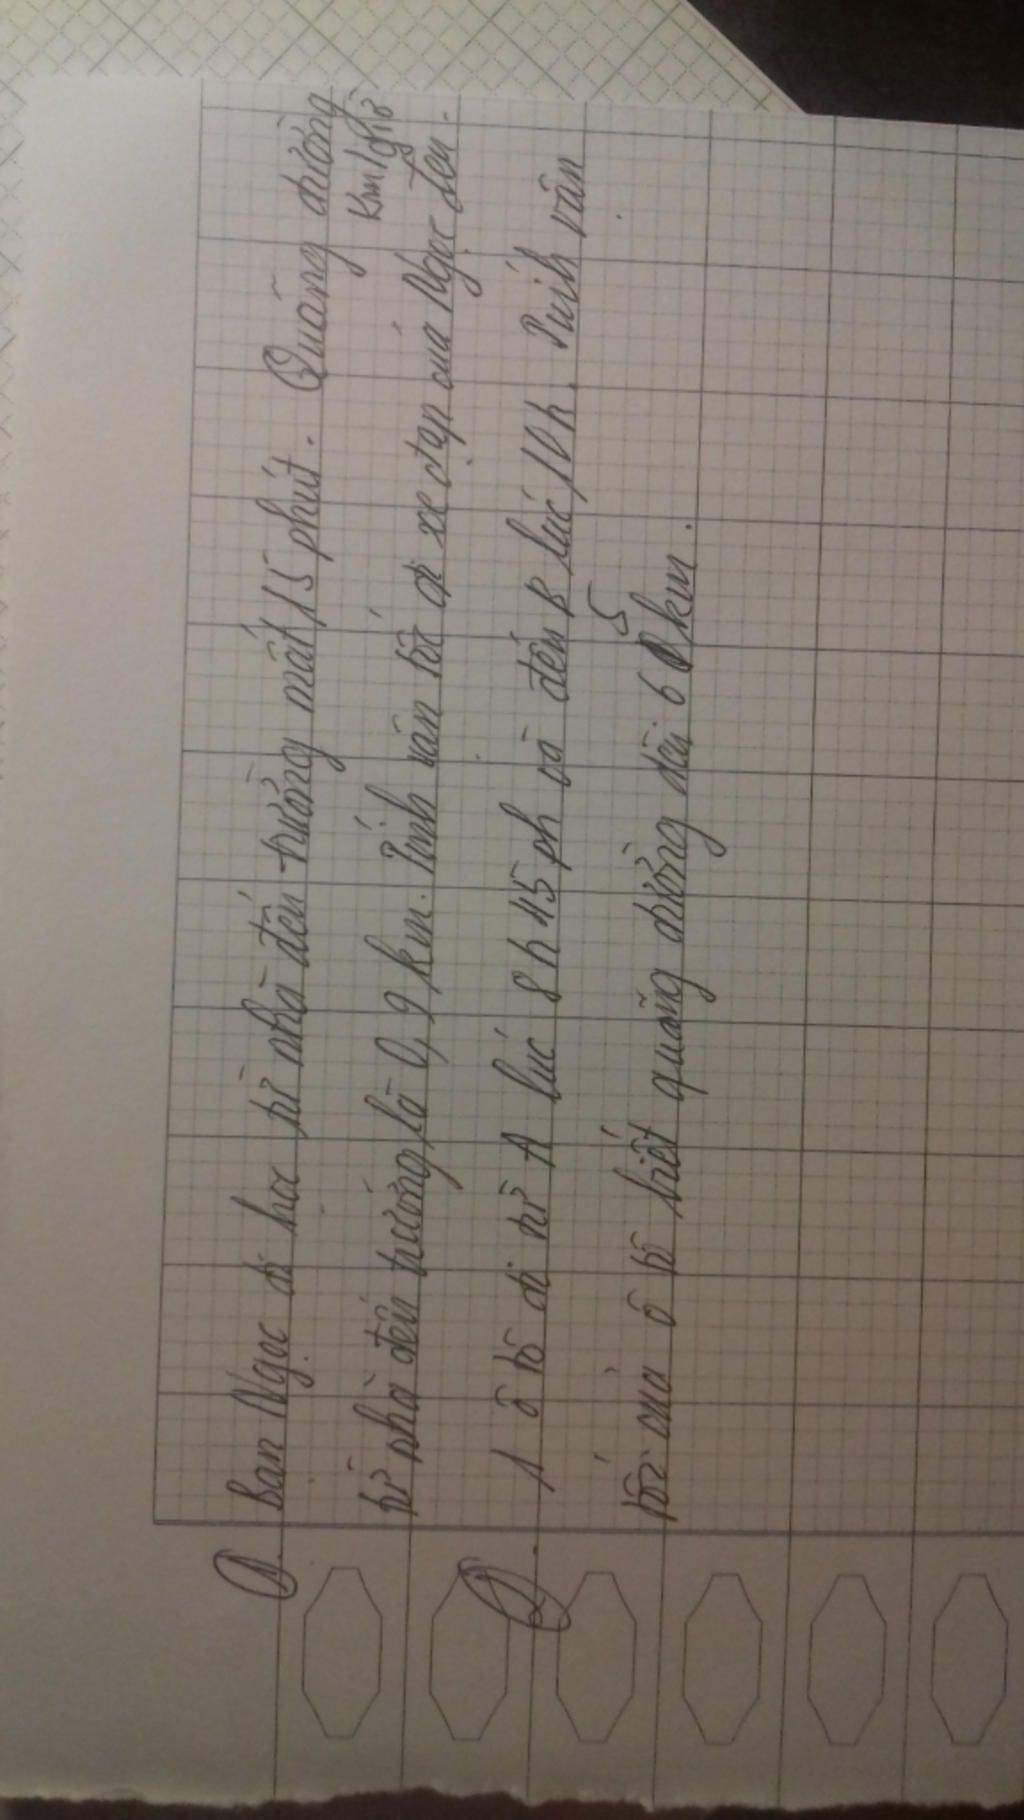 1. Bạn Ngọc đi học từ nhà đến trường mất 15 phút. Quãng đường
từ nhà đến trường là 0,9 km. Tính vận tốc đi xe đạp của Ngọc đến.
km/giờ
2. 1 ô tô đi từ A lúc 8h45ph và đến B lúc 10h. Tính vận
tốc của ô tô biết quãng đường dài 65km.